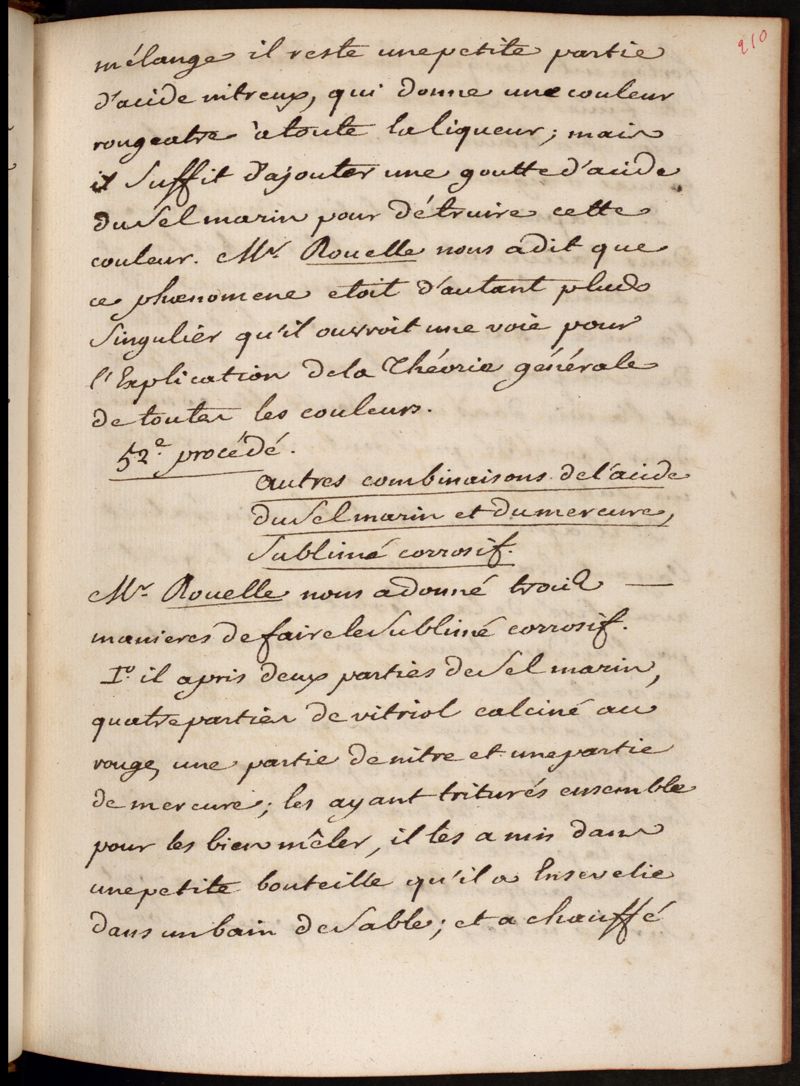 210
mélange il reste une petite partie
d'acide nitreux, qui donne une couleur
rougeatre à toute la liqueur; mais
il Suffit d'ajouter une goutte d'acide
du Sel marin pour détruire cette
couleur. Mr. Rouelle nous a dit que
ce phœnomene etoit d'autant plus
Singulier qu'il ouvroit une voie pour
l'Explication de la Théorie générale
de toutes les couleurs.
52e. procédé.
autres combinaisons de l'acide
du Sel marin et du mercure,
Sublimé corrosif.
Mr. Rouelle nous a donné trois —
manieres de faire le Sublimé corrosif.
Io. il a pris deux parties de Sel marin,
quatre parties de vitriol calciné au
rouge, une partie de nitre et une partie
de mercure; les ayant triturés ensemble
pour les bien mêler, il les a mis dans
une petite bouteille qu'il a Ensevelie
dans un bain de Sable; et a chauffé